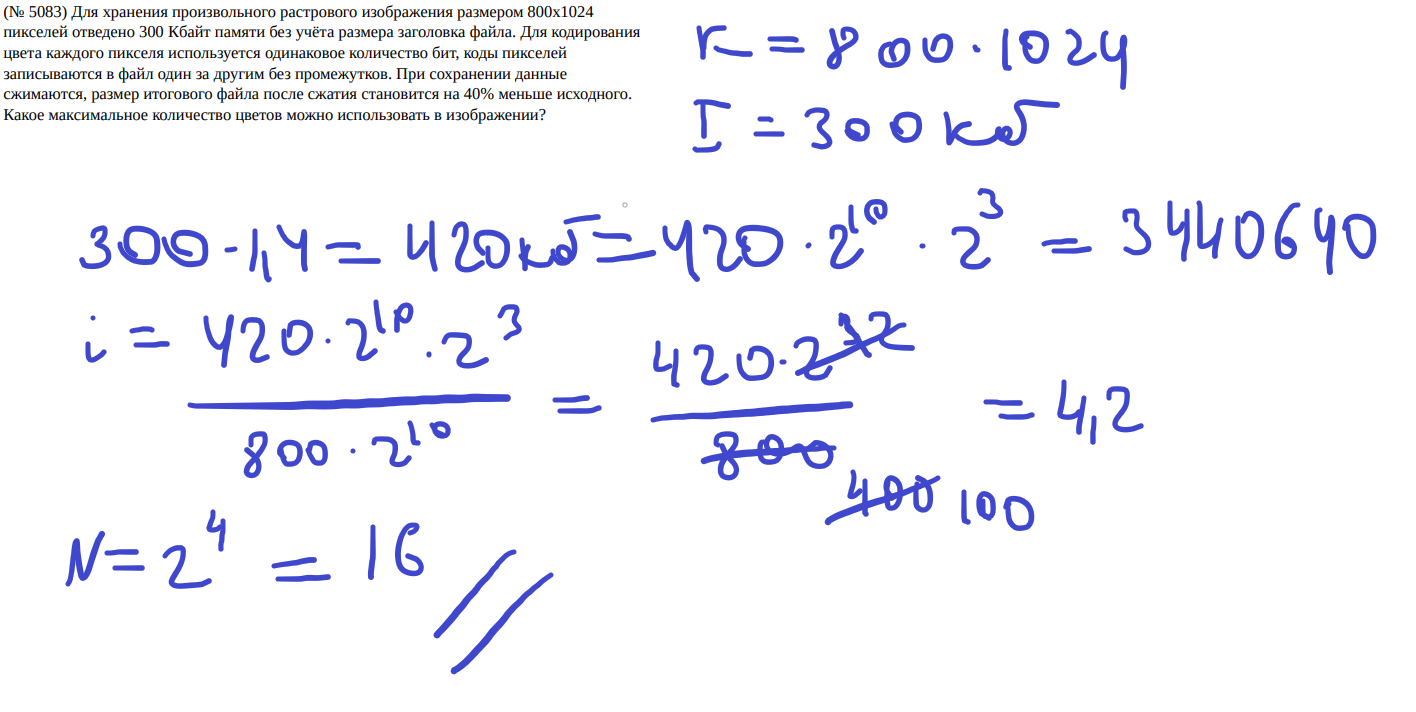 (№ 5083) Для хранения произвольного растрового изображения размером 800x1024
пикселей отведено 300 Кбайт памяти без учёта размера заголовка файла. Для кодирования
цвета каждого пикселя используется одинаковое количество бит, коды пикселей
записываются в файл один за другим без промежутков. При сохранении данные
сжимаются, размер итогового файла после сжатия становится на 40% меньше исходного.
Какое максимальное количество цветов можно использовать в изображении?
K = 800·1024
I = 300кб
300·1,4 = 420кб = 420·2^10·2^3 = 3440640
i = 420·2^10·2^3 / 800·2^10 = 420·2 / 800 400 100 = 4,2
N = 2^4 = 16